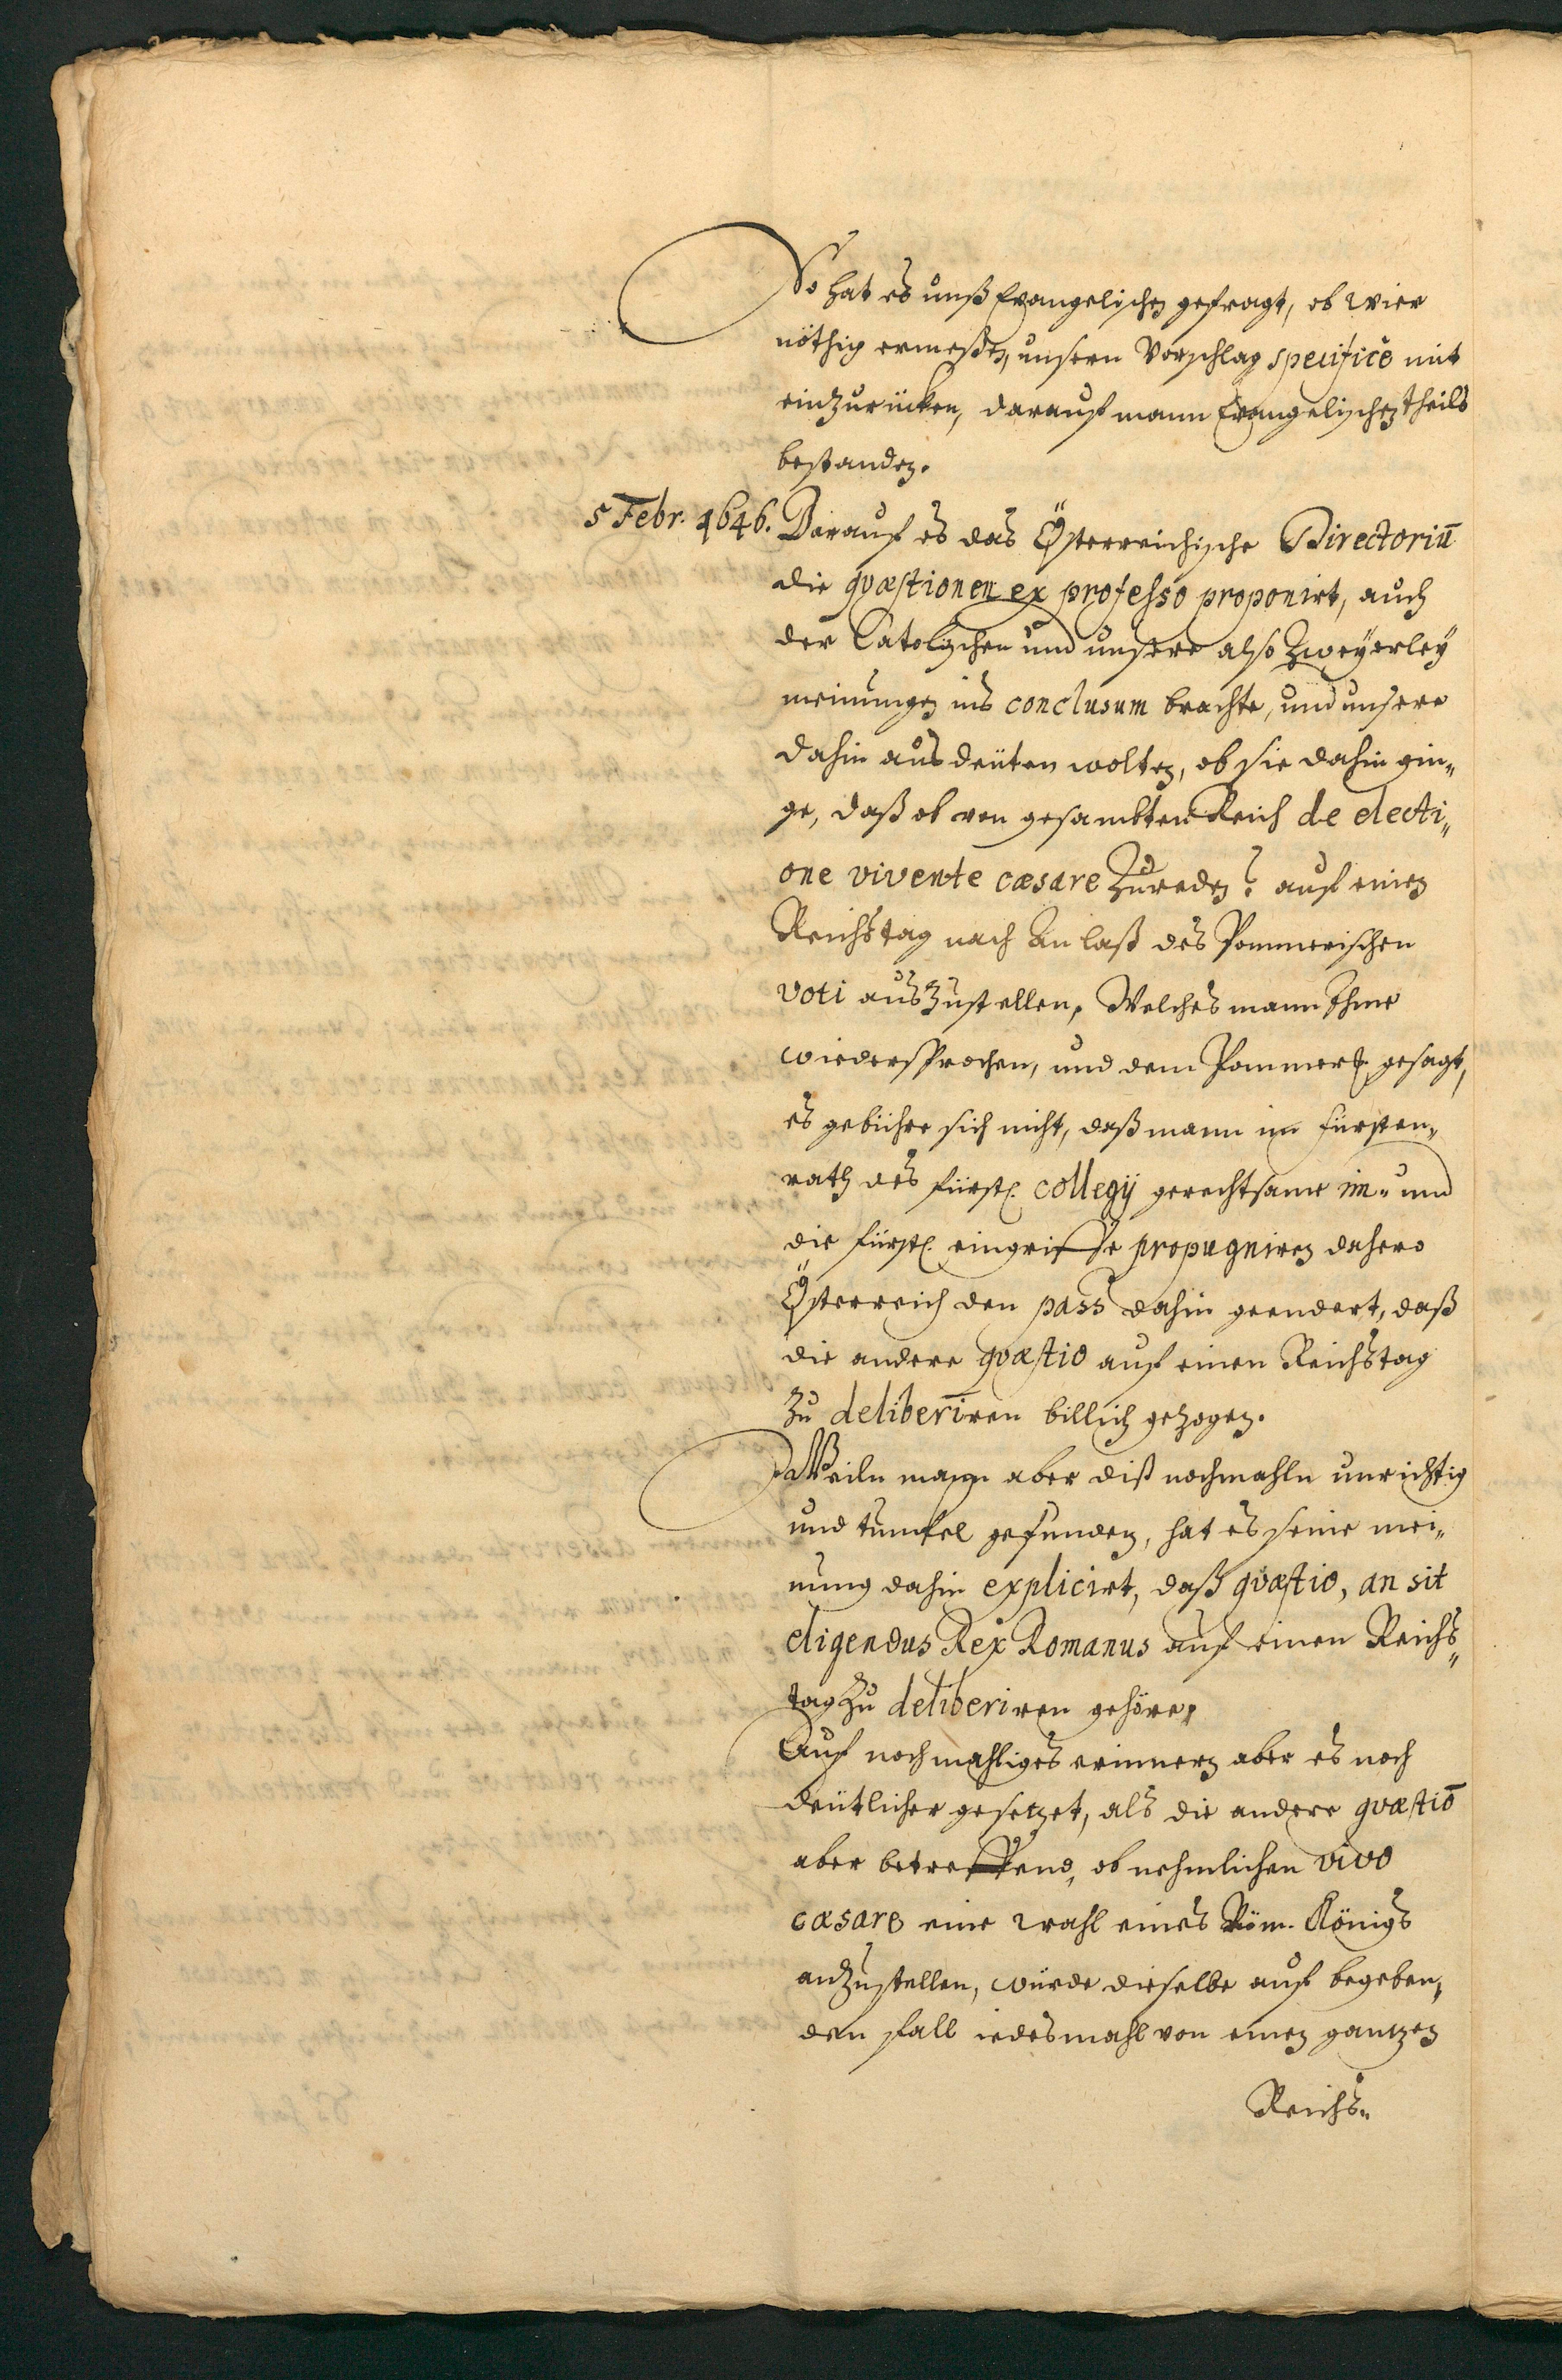 So hat es unß Evangelischen gefragt, ob wier
nöthig ermeßen, unsern Vorschlag specificè mit
einzurücken, darauf mann Evangelischen theils
bestanden.
5 Febr. 1646. Darauf es das Österreichische Directoriū
die qvæstionen ex professo proponirt, auch
der Catolischen und unsere also zweyerley
meinungen ins conclusum brachte, und unsere
dahin ausdeüten wolten, ob sie dahin gin„
ge, daß ob von gesambten Reich de electi„
one vivente cæsare zureden? auf einen
Reichstag nach Anlaß des Pommerischen
voti auszustellen, Welches mann Ihme
wiedersprochen, und dem Pommer: gesagt,
es gebühre sich nicht, daß mann im fürsten„
rath des fürstl. collegij gerechtsame im„ und
die fürstl. eingriffe propugniren dahero
Österreich den pass dahin geendert, daß
die andere qvæstio auf einen Reichstag
zu deliberiren billich gezogen.
Weiln mann aber diß nochmahln unrichtig
und tunckel gefunden, hat es seine mei„
nung dahin explicirt, daß qvæstio, an sit
eligendus Rex Romanus auf einen Reichs„
tag zu deliberiren gehöre,
Auf nochmahliges erinnern aber es noch
deütlicher gesetzet, als die andere qvæstiō
aber betreffend, ob nehmlichen vivo
cæsare eine wahl eines Röm. Königs
anzustellen, würde dieselbe auf begeben„
den fall iedesmahl von einen gantzen
Reichs„